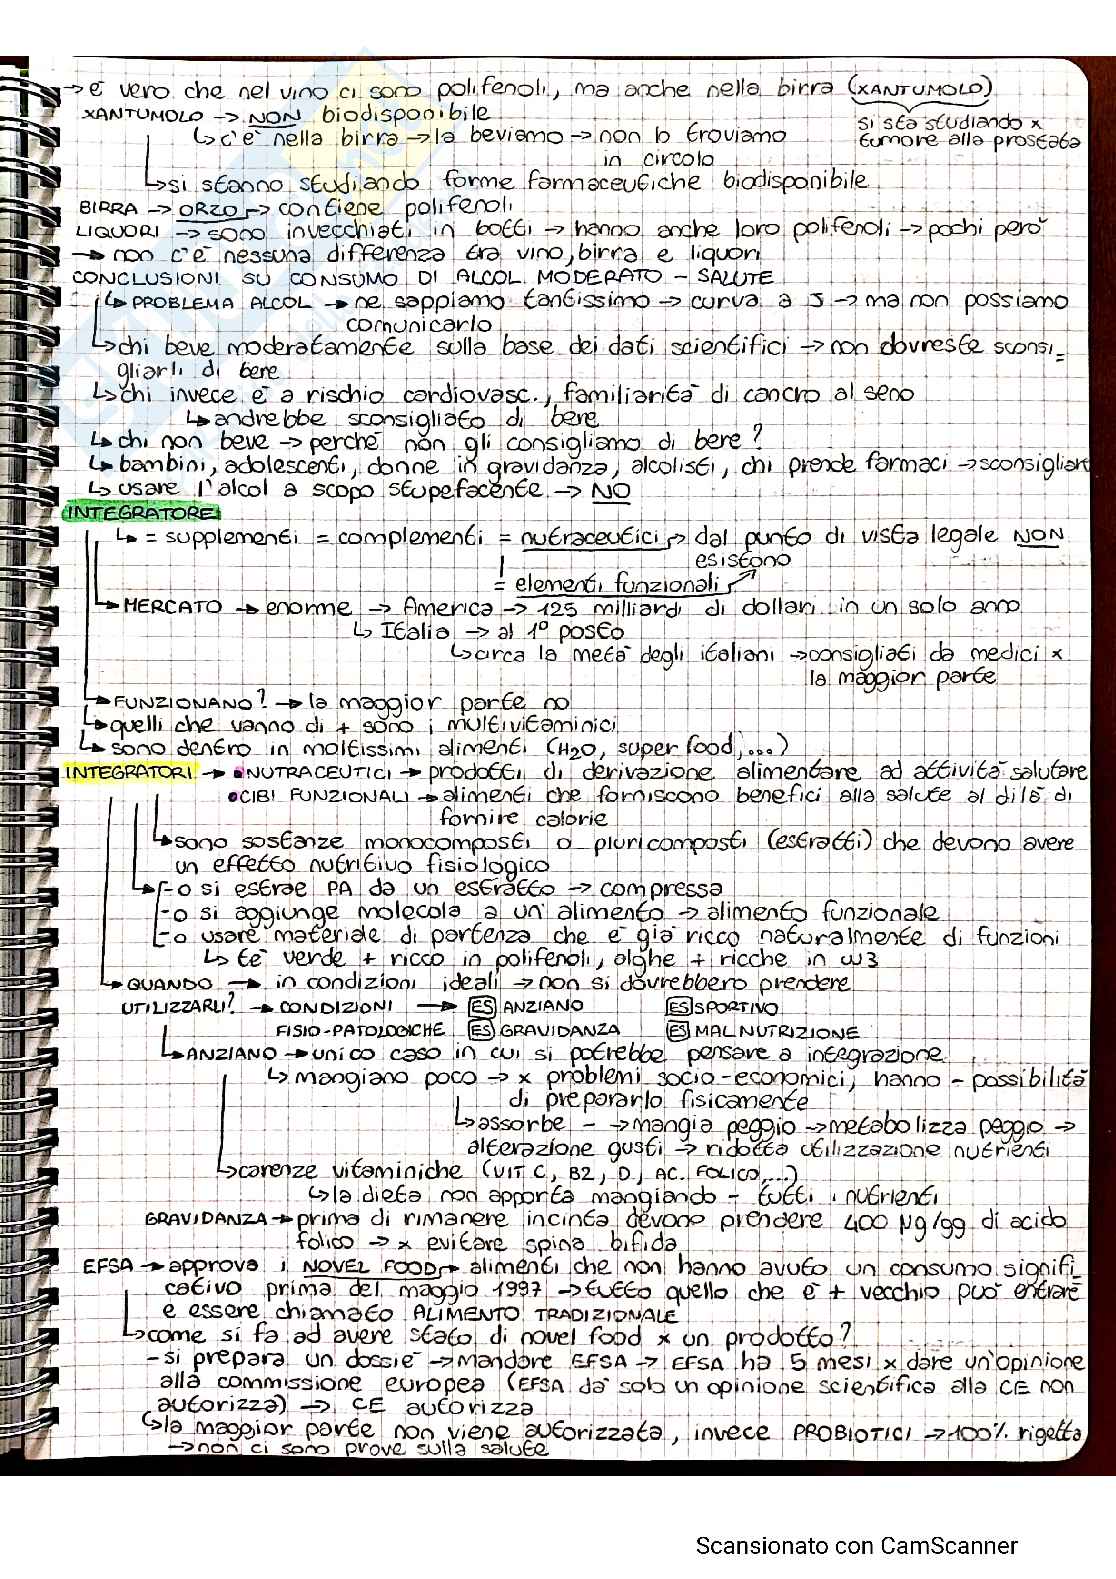 → è vero che nel vino ci sono polifenoli, ma anche nella birra (XANTUMOLO)
XANTUMOLO → NON biodisponibile
si sta studiando x
↳ c'è nella birra → la beviamo → non lo troviamo
tumore alla prostata
in circolo
↳ si stanno studiando forme farmaceutiche biodisponibile
BIRRA → ORZO → contiene polifenoli
LIQUORI → sono invecchiati in botti → hanno anche loro polifenoli → pochi però
→ non c'è nessuna differenza tra vino, birra e liquori
CONCLUSIONI SU CONSUMO DI ALCOL MODERATO - SALUTE
↳ PROBLEMA ALCOL → ne sappiamo tantissimo → curva a J → ma non possiamo
comunicarlo
↳ chi beve moderatamente sulla base dei dati scientifici → non dovreste sconsi=
gliarli di bere
↳ chi invece è a rischio cardiovasc., familiarità di cancro al seno
↳ andrebbe sconsigliato di bere
↳ chi non beve → perché non gli consigliamo di bere?
↳ bambini, adolescenti, donne in gravidanza, alcolisti, chi prende farmaci → sconsigliart
↳ usare l'alcol a scopo stupefacente → NO
INTEGRATORE
↳ = supplementi = complementi = nutraceutici → dal punto di vista legale NON
esistono
= elementi funzionali
↳ MERCATO → enorme → America → 125 milliardi di dollari in un solo anno
↳ Italia → al 1° posto
↳ circa la metà degli italiani → consigliati da medici x
la maggior parte
↳ FUNZIONANO? → la maggior parte no
↳ quelli che vanno di + sono i multivitaminici
↳ sono dentro in moltissimi alimenti (H2O, super food, ...)
INTEGRATORI → • NUTRACEUTICI → prodotti di derivazione alimentare ad attività salutare
• CIBI FUNZIONALI → alimenti che forniscono benefici alla salute al di là di
fornire calorie
↳ sono sostanze monocomposti o pluricomposti (estratti) che devono avere
un effetto nutritivo fisiologico
↳ - o si estrae PA da un estratto → compressa
- o si aggiunge molecola a un' alimento → alimento funzionale
- o usare materiale di partenza che è già ricco naturalmente di funzioni
↳ tè verde + ricco in polifenoli, alghe + ricche in ω3
↳ QUANDO → in condizioni ideali → non si dovrebbero prendere
UTILIZZARLI? → CONDIZIONI → ES ANZIANO ES SPORTIVO
FISIO-PATOLOGICHE ES GRAVIDANZA ES MALNUTRIZIONE
↳ ANZIANO → unico caso in cui si potrebbe pensare a integrazione
↳ mangiano poco → x problemi socio-economici, hanno - possibilità
di prepararlo fisicamente
↳ assorbe - → mangia peggio → metabolizza peggio →
alterazione gusti → ridotta utilizzazione nutrienti
↳ carenze vitaminiche (VIT C, B2, D, AC. FOLICO,...)
↳ la dieta non apporta mangiando - tutti i nutrienti
GRAVIDANZA → prima di rimanere incinta devono prendere 400 μg/gg di acido
folico → x evitare spina bifida
EFSA → approva i NOVEL FOOD → alimenti che non hanno avuto un consumo signifi_
cativo prima del maggio 1997 → tutto quello che è + vecchio può entrare
e essere chiamato ALIMENTO TRADIZIONALE
↳ come si fa ad avere stato di novel food x un prodotto?
- si prepara un dossie → mandare EFSA → EFSA ha 5 mesi x dare un'opinione
alla commissione europea (EFSA dà solo un opinione scientifica alla CE non
autorizza) → CE autorizza
↳ la maggior parte non viene autorizzata, invece PROBIOTICI → 100% rigetta
→ non ci sono prove sulla salute
Scansionato con CamScanner